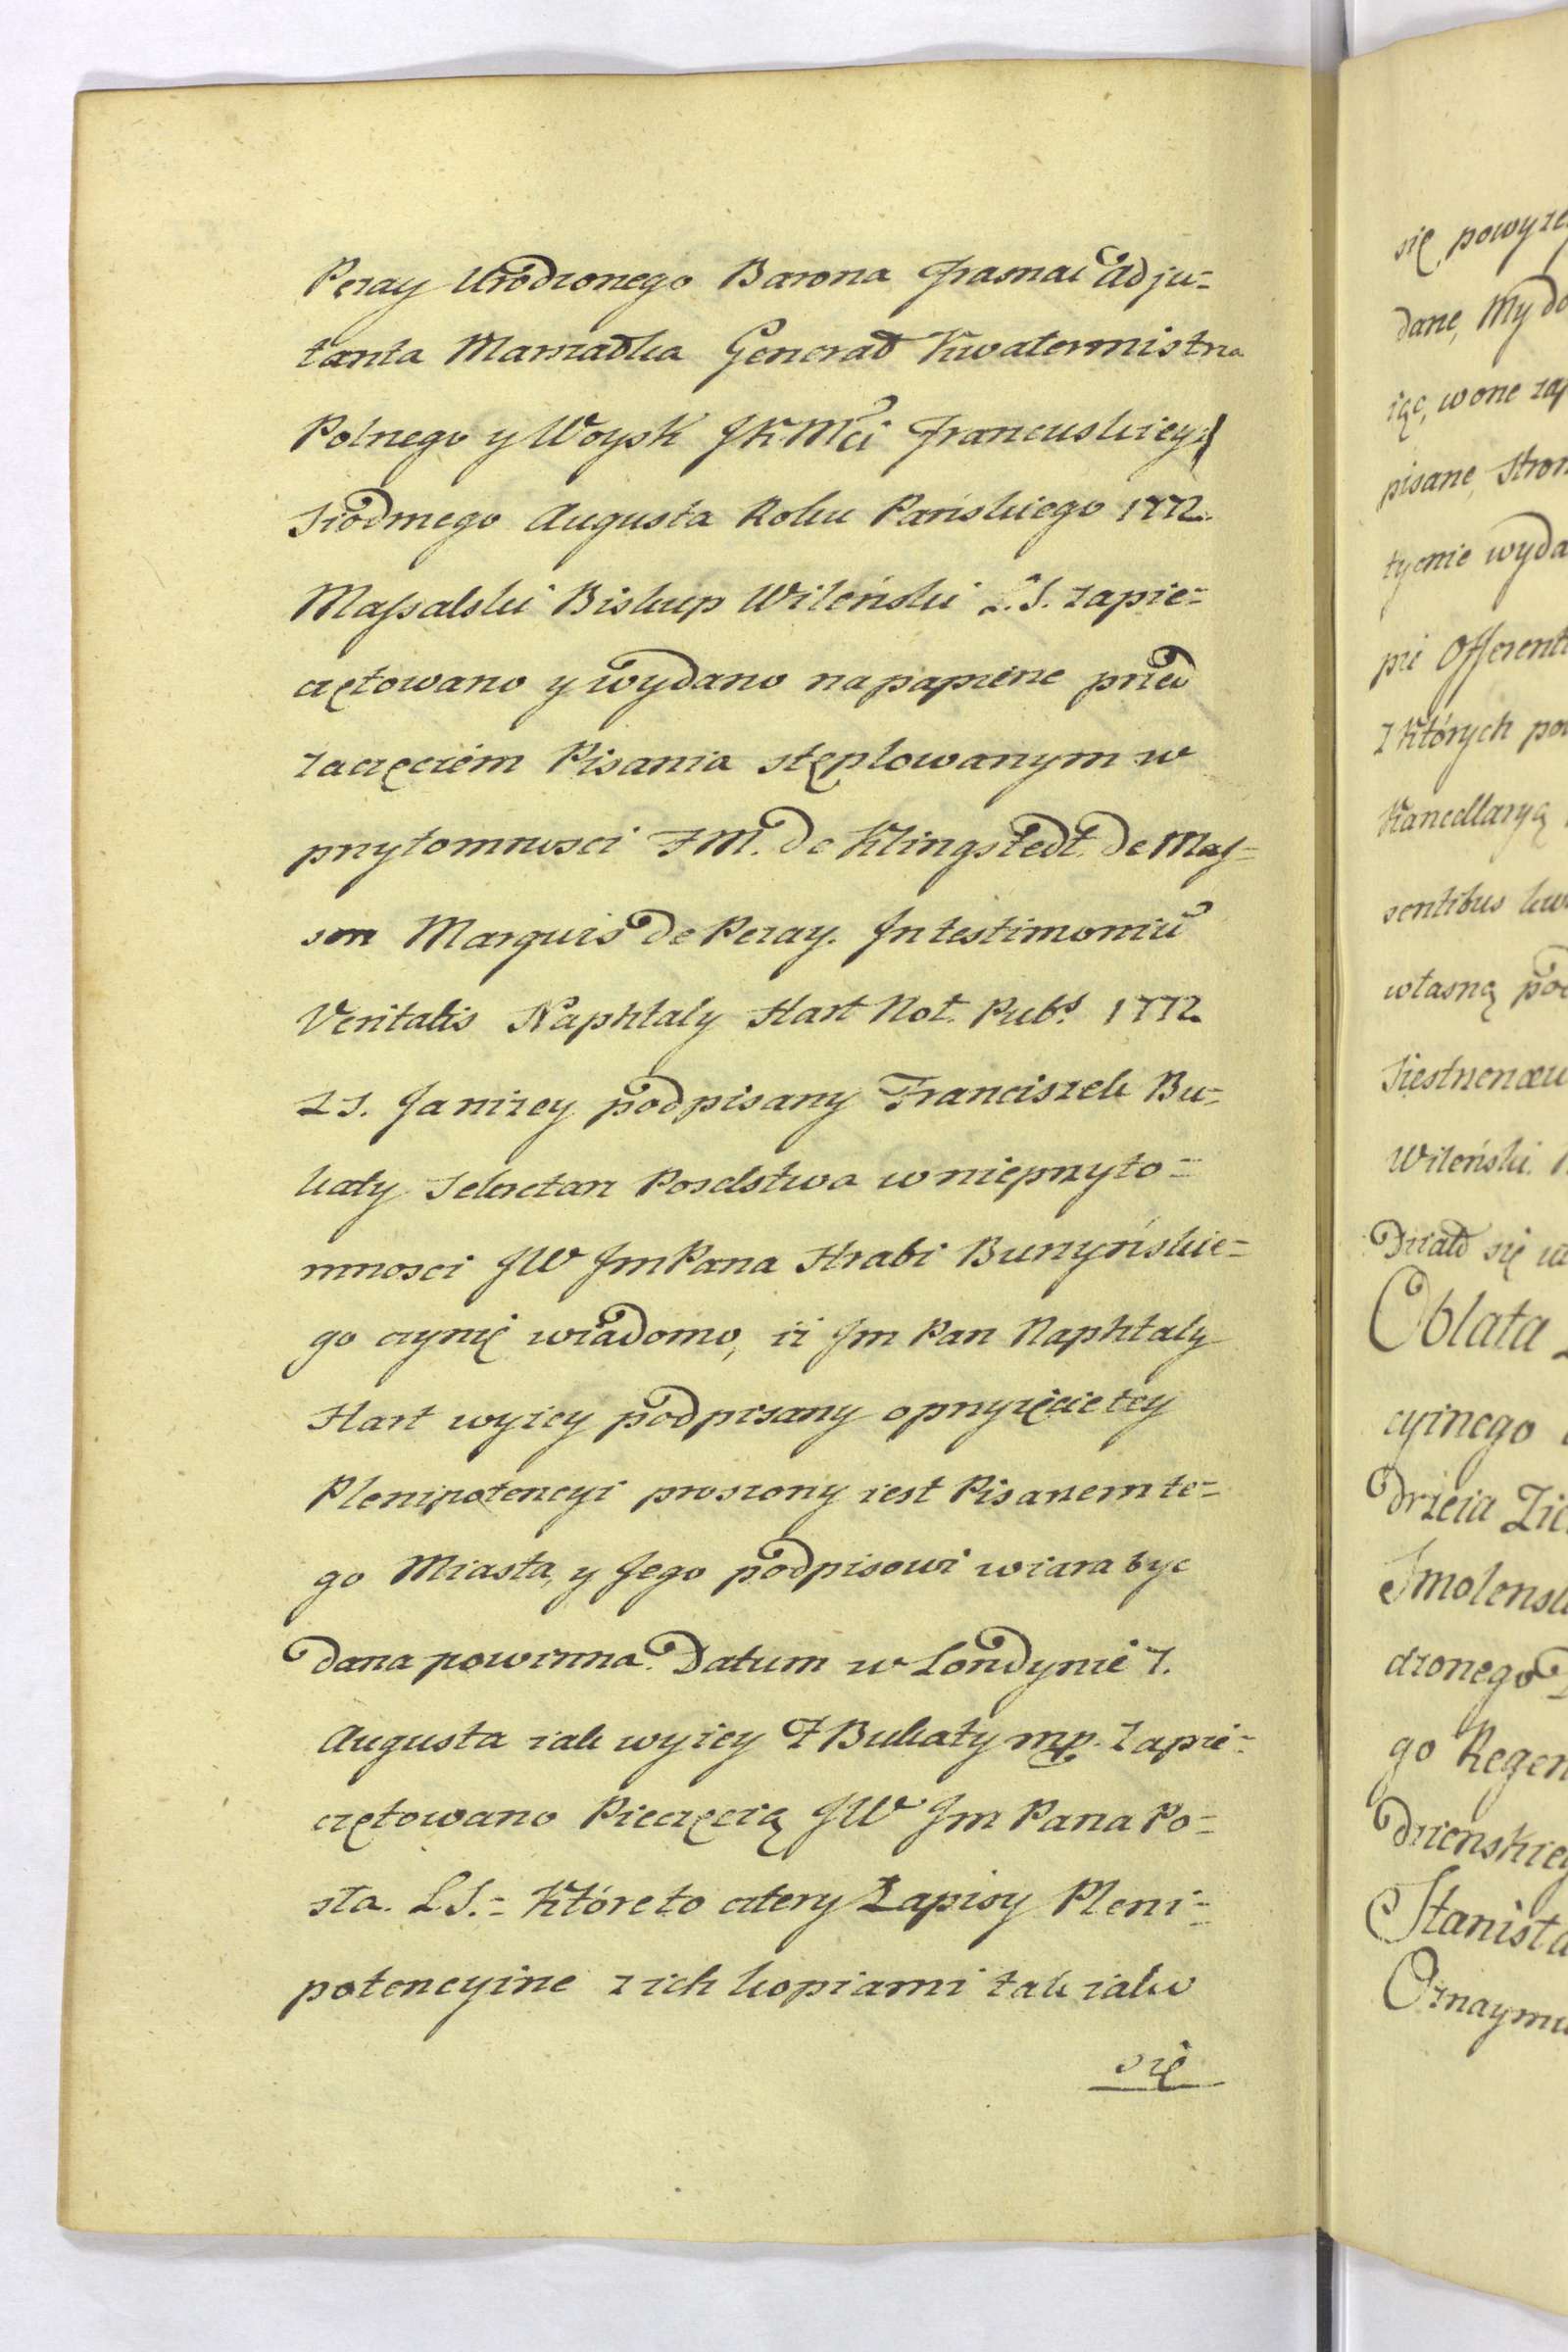 Pezay Urodzonego Barona Frasnai Adju=
tanta Marszałka Generał Kwatermistrza
Polnego y Woysk JKMci Francuskiey
Siodmego Augusta Roku Pańskiego 1772.
Massalski Biskup Wileński L.S. zapie=
czętowano y wydano na papierze przed
zaczęciem Pisania stęplowanym w
przytomnosci F M. de Klingstedt. de Mas=
son Marquis de Pezay. In testimoniũ
Veritatis Naphtaly Hart Not. Pubs. 1772
LS. Ja niżey podpisany Franciszek Bu=
katy Sekretarz Poselstwa w nieprzyto=
mnosci JW JmPana Hrabi Burzyńskie=
go czynię wiadomo, iż Jm Pan Naphtaly
Hart wyżey podpisany o przyięcie tey
Plenipotencyi proszony iest Pisarzem te=
go Miasta, y Jego podpisowi wiara byc
dana powinna. Datum w Londynie 7.
Augusta iak wyżey F Bukaty mp. Zapie=
czętowano Pieczęcią JW Jm Pana Po=
sła. LS.= Które to cztery Zapisy Pleni=
potencyine z ich kopiami tak iako
się
się powyże
dane, My do
iąc, w one zap
pisane, Stron
tycznie wyda
pie Offerent
z Których po
Kancellaryą
sentibus
własną pod
Siestrzence
Wileński
Działo się w
Oblata
cyinego
drzeia Zie
Smolensk
dzonego
go Regen
dzienskieg
Stanisła
Oznaymu